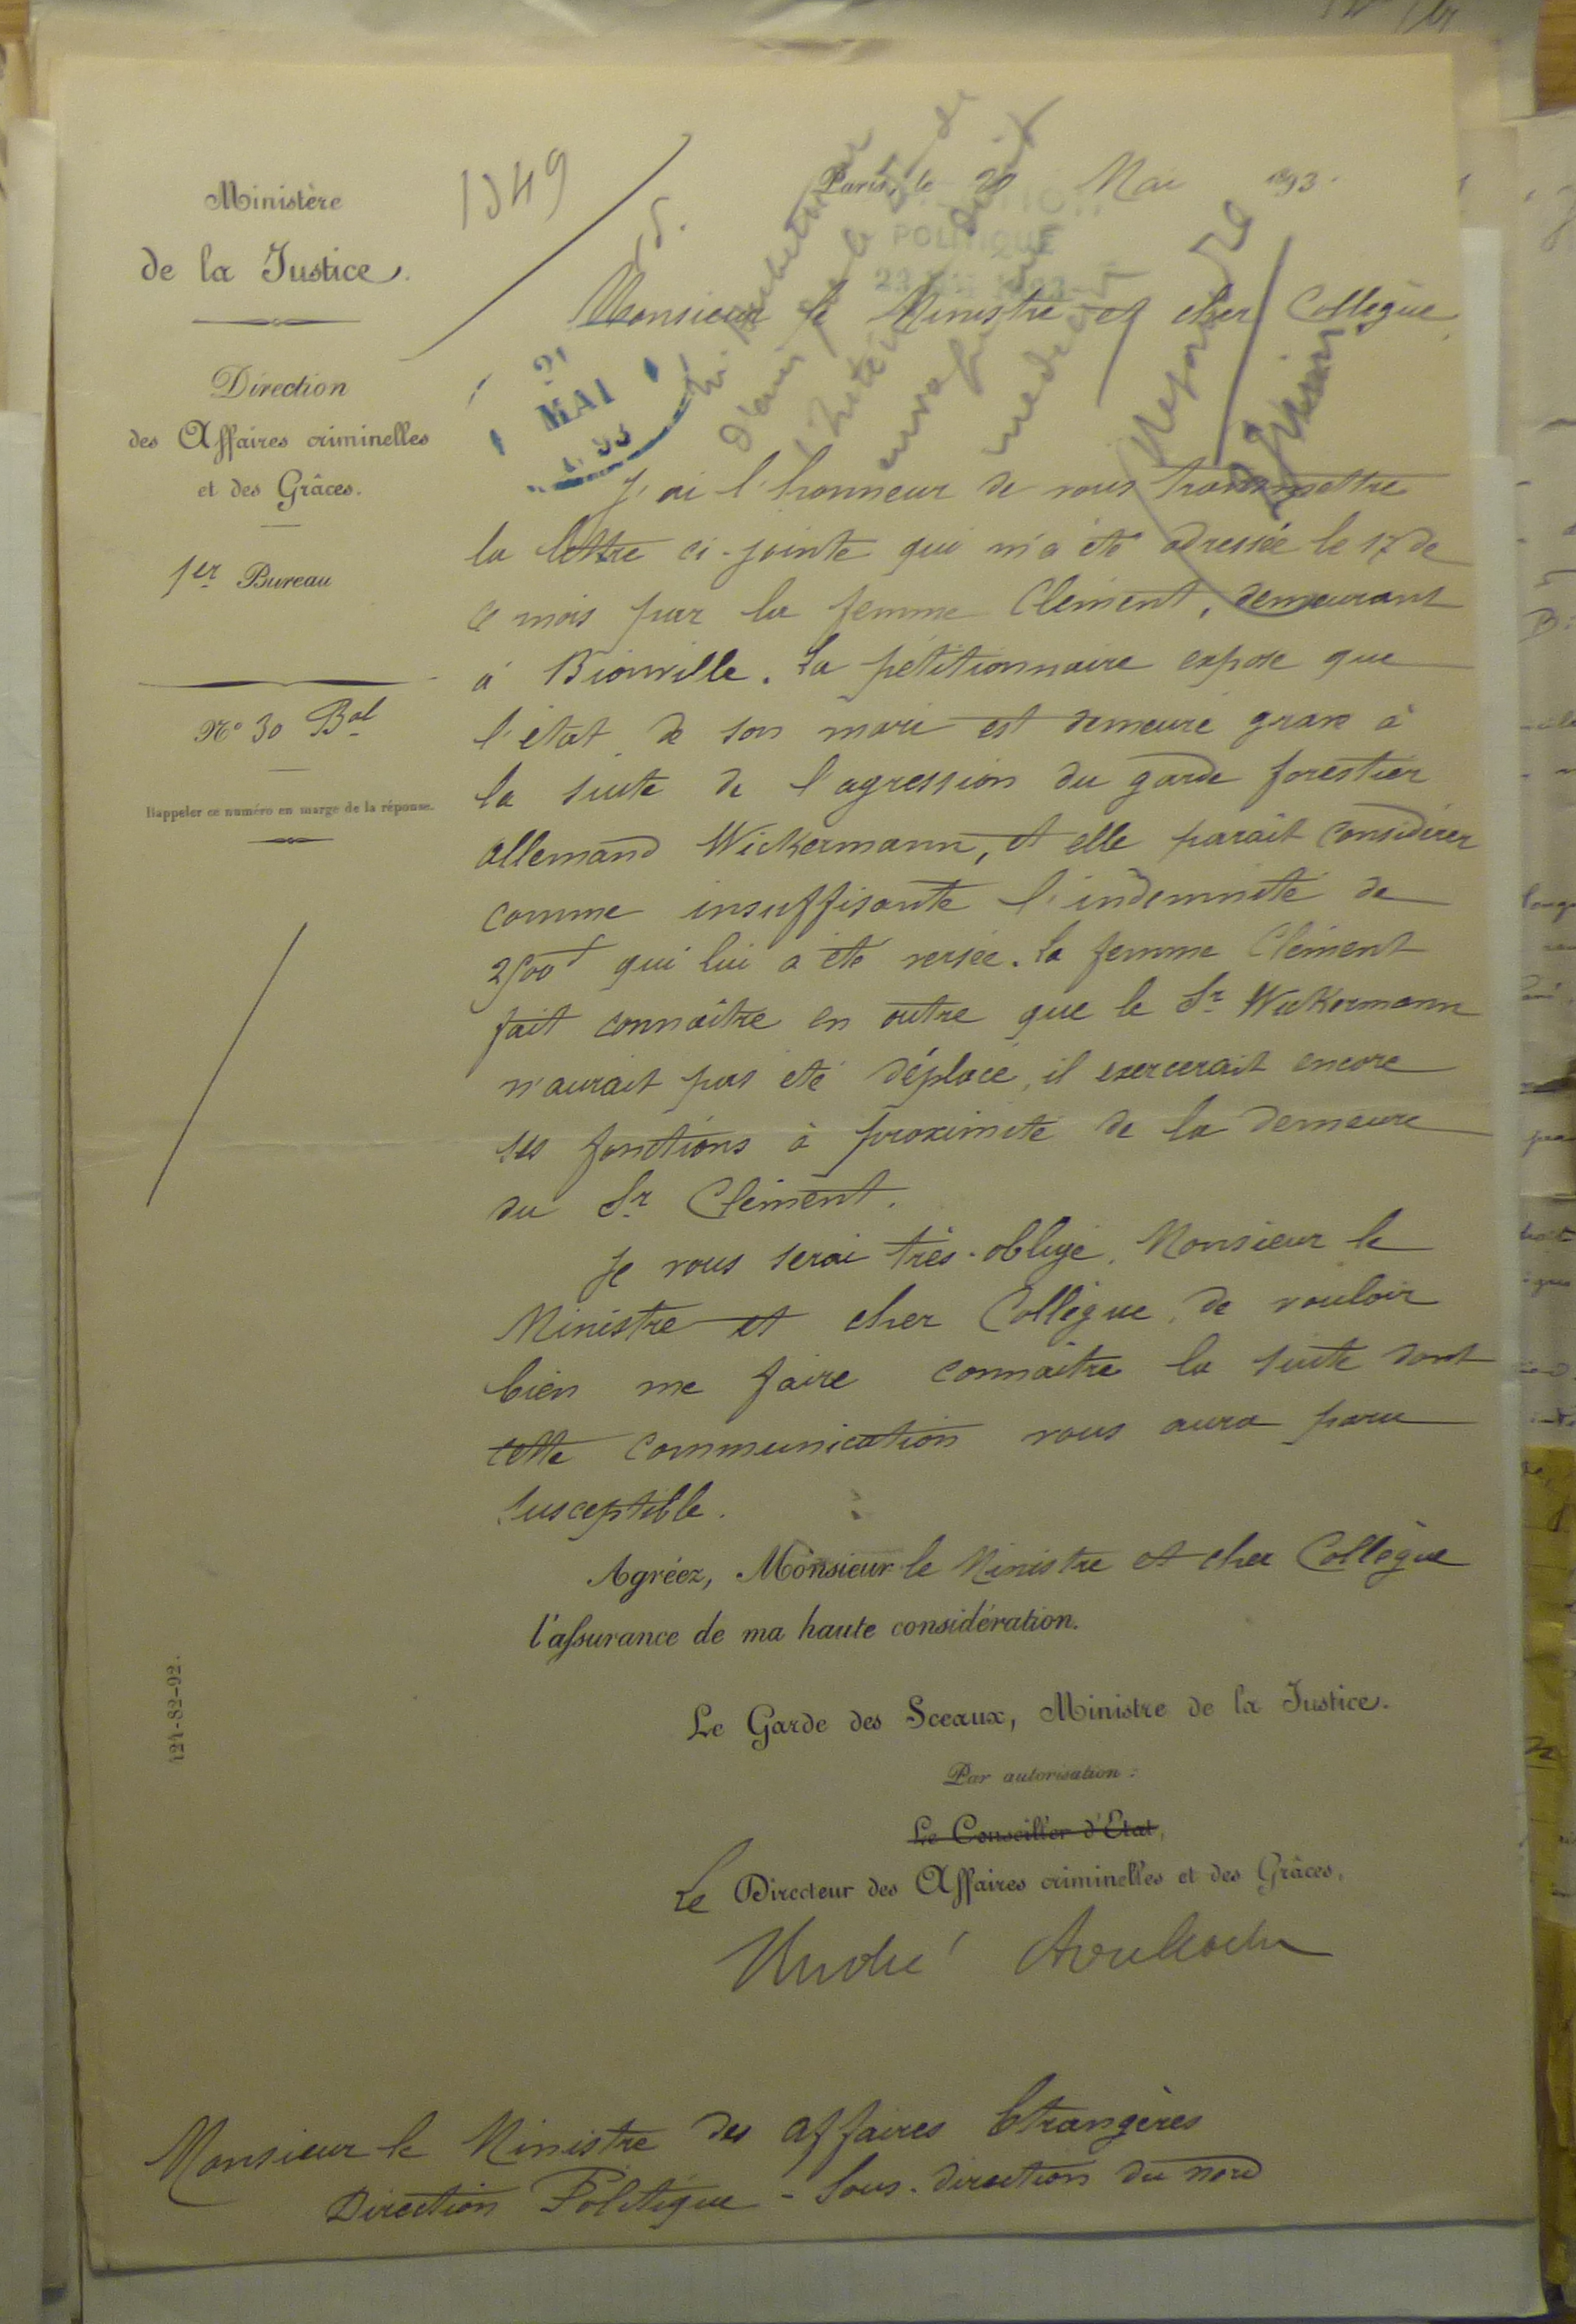 Ministère
de la Justice.
Direction
des Affaires criminelles
et des Grâces.
1er Bureau
N° 30 Bal
Rappeler ce numéro en marge de la réponse.
1349
Paris, le 20 Mai 1893.
POLITIQUE
21
MAI
93
Monsieur le Ministre et cher Collègue,
J'ai l'honneur de vous transmettre
la lettre ci-jointe qui m'a été adressée le 17 de
ce mois par la femme Clément, demeurant
à Bionville. La pétitionnaire expose que
l'état de son mari est demeuré grave à
la suite de l'agression du garde forestier
allemand Wickermann, et elle parait considérer
comme insuffisante l'indemnité de
2500f qui lui a été versée. La femme Clément
fait connaître en outre que le Sr Wickermann
n'aurait pas été déplacé, il exercerait encore
ses fonctions à proximité de la demeure
du Sr Clément.
Je vous serai très-obligé, Monsieur le
Ministre et cher Collègue, de vouloir
bien me faire connaître la suite dont
cette communication vous aura paru
susceptible.
Agréez, Monsieur le Ministre et cher Collègue
l'assurance de ma haute considération.
Le Garde des Sceaux, Ministre de la Justice.
Par autorisation :
Le Conseiller d'Etat,
Le Directeur des Affaires criminelles et des Grâces,
André
121-82-92.
Monsieur le Ministre des affaires Etrangères
Direction Politique - Sous-direction du nord